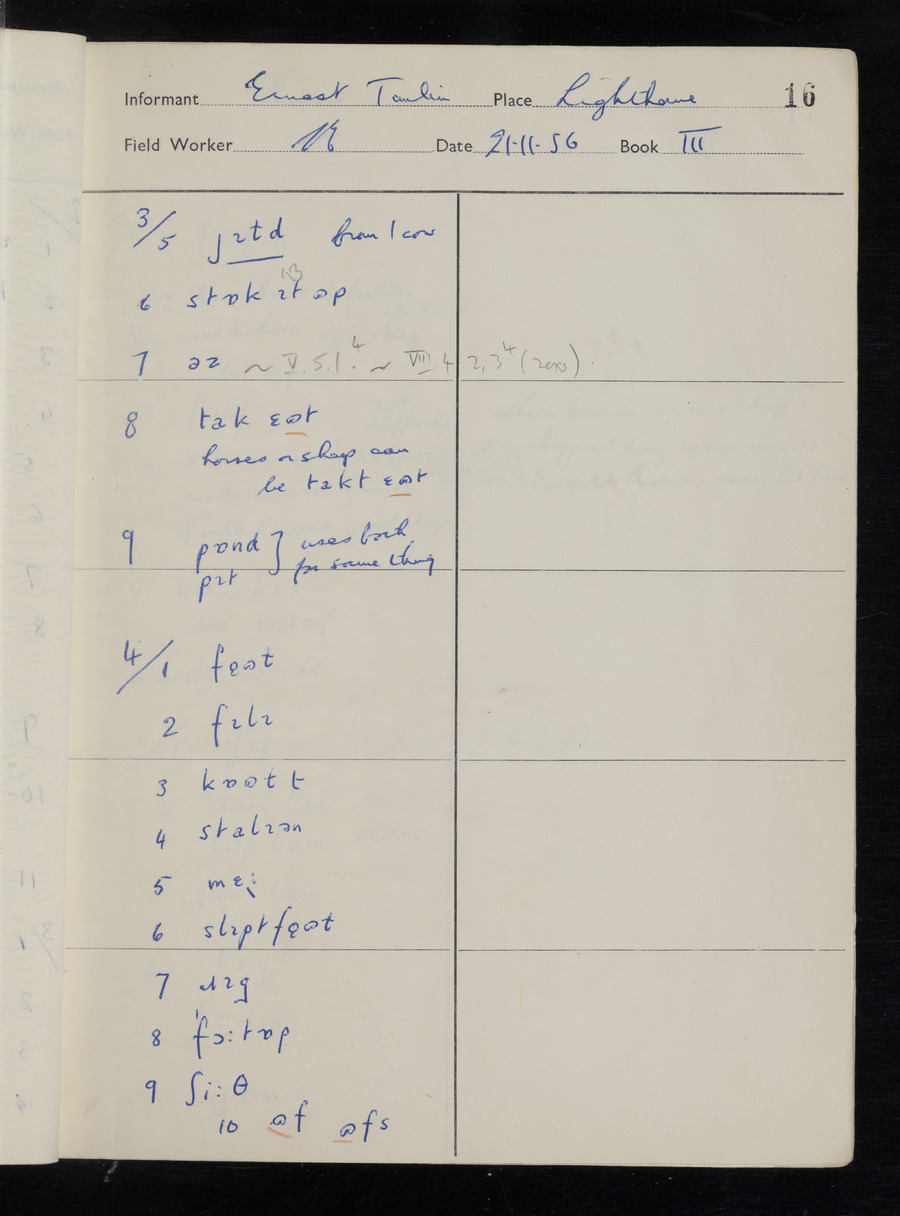 Informant Ernest Tomlin Place Lighthorne 16
Field Worker Date 21-11-56 Book III
3/5 jɪɛd from 1 cow
6 stɒk ɪt ɒp
7 əz ~ V.5.1⁴. ~ VIII.4 2,3⁴
8 tak ɛʊt
horses or sheep can
be takt ɛʊt
9 pɒnd } uses both
pɪt for same thing
4/1 fɛʊt
2 fɪlɪ
3 kɒʊɫt
4 stalɪən
5 mɛ:
6 slɪptfɛʊt
7 ɹɪg
8 fɔ:tɒp
9 ʃi:θ
10 ʊf ʊfs